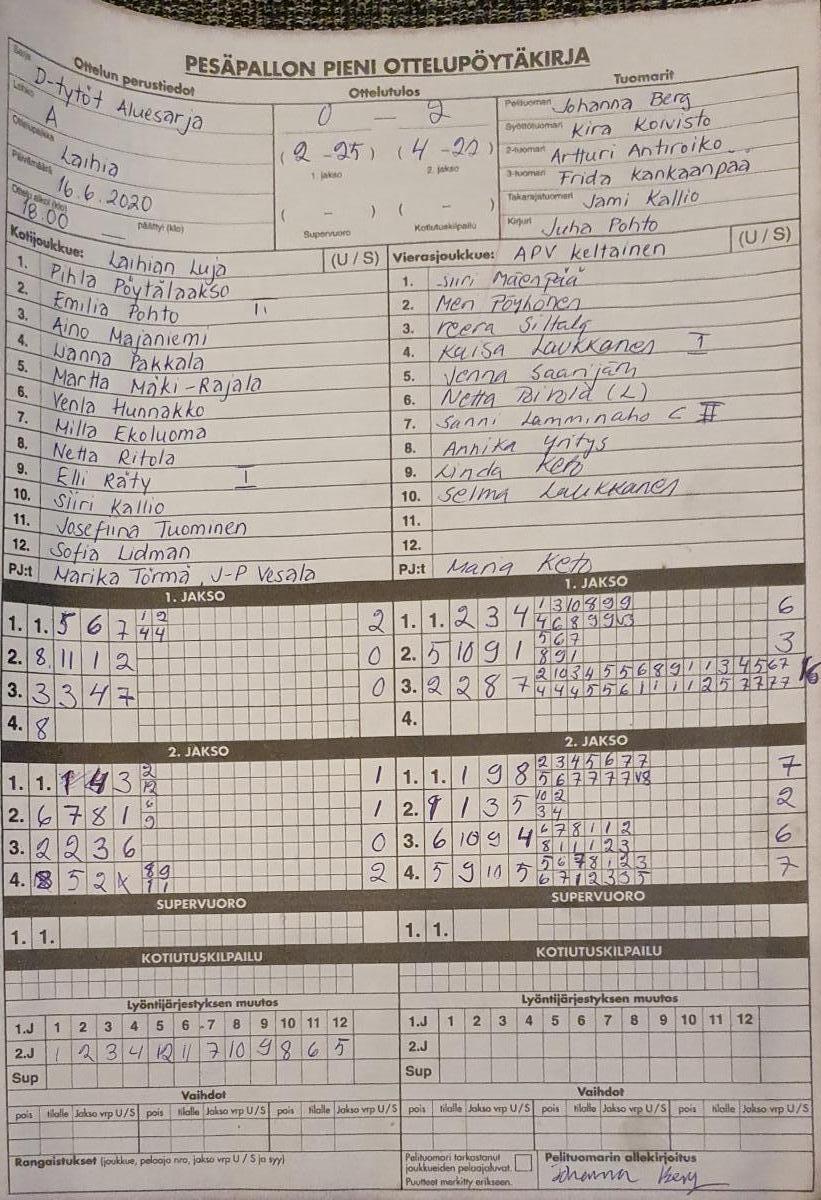 PESÄPALLON PIENI OTTELUPÖYTÄKIRJA
Ottelun perustiedot
Sarja D-tytöt Aluesarja
Lohko A
Ottelupaikka Laihia
Päivämäärä 16.6.2020
Ottelu alkoi (klo) 18.00 päättyi (klo)
Ottelutulos
0 - 2
(2 - 25) (4 -
1. jakso 2. jakso
( - ) ( - )
Supervuoro Kotiutuskilpailu
Tuomarit
Pelituomari Johanna Berg
Syöttötuomari Kira Koivisto
2-tuomari Artturi Antiroiko
3-tuomari Frida Kankaanpää
Takarajatuomari Jami Kallio
Kirjuri Juha Pohto
Kotijoukkue: Laihian Luja (U / S)
1. Pihla Pöytälaakso
2. Emilia Pohto II
3. Aino Majaniemi
4. Nanna Pakkala
5. Martta Mäki-Rajala
6. Venla Hunnakko
7. Milla Ekoluoma
8. Netta Ritola
9. Elli Räty I
10. Siiri Kallio
11. Josefiina Tuominen
12. Sofia Lidman
PJ:t Marika Törmä, J-P Vesala
Vierasjoukkue: APV Keltainen (U / S)
1. Siiri Mäenpää
2. Meri Pöyhönen
3. Veera Siltala
4. Kaisa Laukkanen I
5. Jenna Saarijärvi
6. Netta (L)
7. Sanni Lamminaho C II
8. Annika Yritys
9. Linda Keto
10. Selma Laukkanen
11.
12.
PJ:t Maria Keto
1. JAKSO
1. 1. 5 6 7 1 2 2
4 4
2. 8 11 1 2 0
3. 3 3 4 7 0
4. 8
1. JAKSO
1. 1. 2 3 4 1 3 10 8 9 9 6
4 6 8 9 9
2. 5 10 9 1 5 6 7 3
8 9 1
3. 2 2 8 7 2 10 3 4 5 5 6 8 9 1 1 3 4 5 6 7 16
4 4 4 5 5 6 1 1 1 1 2 5 7 7 7 7
4.
2. JAKSO
1. 1. 4 3 2 1
12
2. 6 7 8 1 6 1
9
3. 2 2 3 6 0
4. 8 5 2 8 9 2
1 1
2. JAKSO
1. 1. 1 9 8 2 3 4 5 6 7 7 7
5 6 7 7 7 7 8
2. 1 3 5 10 2 2
3 4
3. 6 10 9 4 6 7 8 1 1 2 6
8 1 1 1 2 3
4. 5 9 10 5 5 6 7 8 1 2 3 7
6 7 1 2 3 3 5
SUPERVUORO
1. 1.
SUPERVUORO
1. 1.
KOTIUTUSKILPAILU
KOTIUTUSKILPAILU
Lyöntijärjestyksen muutos
1.J 1 2 3 4 5 6 7 8 9 10 11 12
2.J 1 2 3 4 12 11 7 10 9 8 6 5
Sup
Lyöntijärjestyksen muutos
1.J 1 2 3 4 5 6 7 8 9 10 11 12
2.J
Sup
Vaihdot
pois tilalle Jakso vrp U/S pois tilalle Jakso vrp U/S pois tilalle Jakso vrp U/S
Vaihdot
pois tilalle Jakso vrp U/S pois tilalle Jakso vrp U/S pois tilalle Jakso vrp U/S
Rangaistukset (joukkue, pelaaja nro, jakso vrp U / S ja syy)
Pelituomari tarkastanut
joukkueiden pelaajaluvat.
Puutteet merkitty erikseen.
Pelituomarin allekirjoitus
Johanna Berg